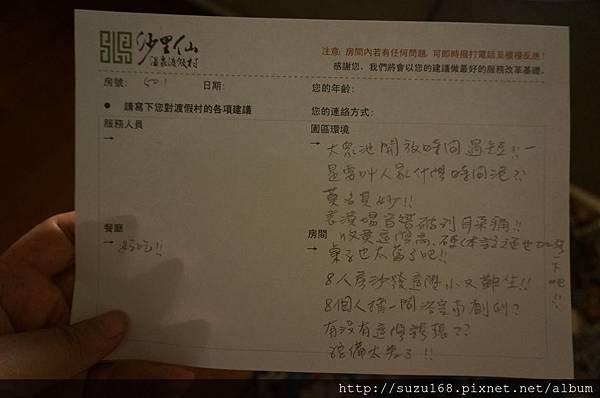 沙里仙
溫泉渡假村
注意：房間內若有任何問題，可即時撥打電話至櫃檯反應！
感謝您，我們將會以您的建議做最好的服務改革基礎。
房號： 501 日期： 您的年齡：
● 請寫下您對渡假村的各項建議 您的連絡方式：
服務人員
→
園區環境
→ 大眾池開放時間過短!!一
是要叫人家什麼時間泡??
莫名其妙!!
餐廳
→ 好吃!!
房間
收費這麼高、硬体設施也加強一下吧!!
→ 桌子也太舊了吧!!
8人房沙發這麼小又難坐!!
8個人擠一間浴室
有沒有這麼誇張??
設備太差了!!
http://suzu168.pixnet.net/album